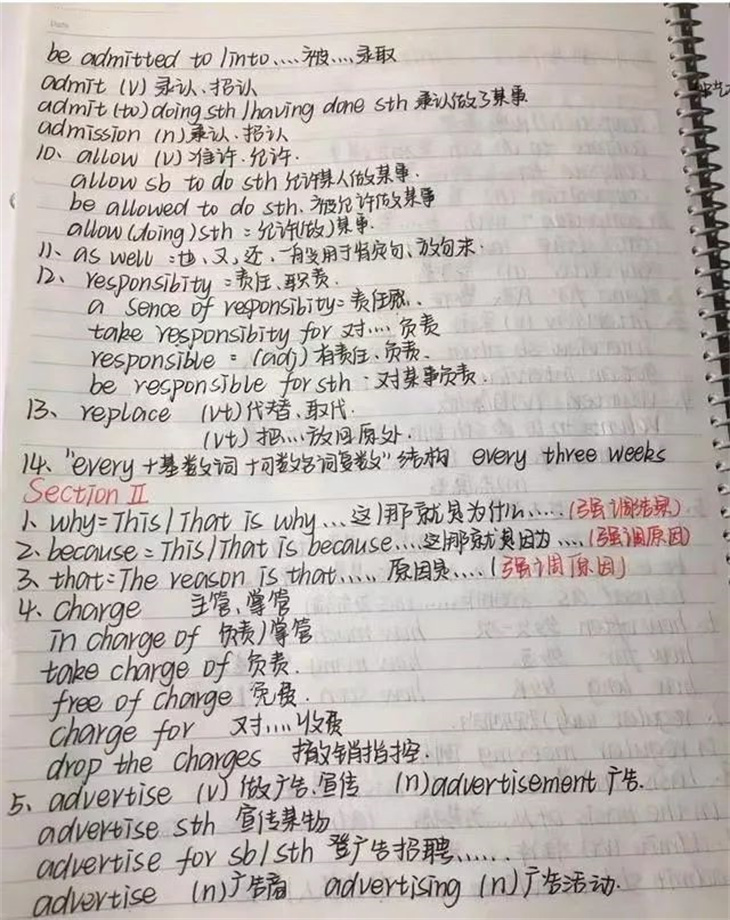 Date
be admitted to /into....被....录取
admit (v) 录认、招认
admit (to) doing sth /having done sth 承认做了某事
admission (n) 承认、招认
10、allow (v) 准许、允许.
allow sb to do sth 允许某人做某事.
be allowed to do sth. 被允许做某事
allow (doing) sth = 允许(做)某事.
11、as well :也、又,还,一般用于肯定句,放句末.
12、responsibity =责任、职责.
a sence of responsibity=责任感、
take responsibity for 对.... 负责
responsible = (adj) 有责任、负责.
be responsible for sth . 对某事负责.
13、replace (vt) 代替、取代.
(vt) 把...放回原处.
14、"every +基数词 +可数名词复数" 结构 every three weeks
Section II
1、why=This / That is why ... 这/那就是为什么.....(强调结果)
2、because = This / That is because....这/那就是因为 ....(强调原因)
3、that=The reason is that..... 原因是....(强调原因)
4、charge 主管、掌管
in charge of 负责/掌管
take charge of 负责.
free of charge 免费.
charge for 对....收费
drop the charges 撤销指控.
5、advertise (v) 做广告.宣传 (n) advertisement 广告.
advertise sth 宣传某物
advertise for sb/sth 登广告招聘......
advertise (n) 广告商 advertising (n) 广告活动.